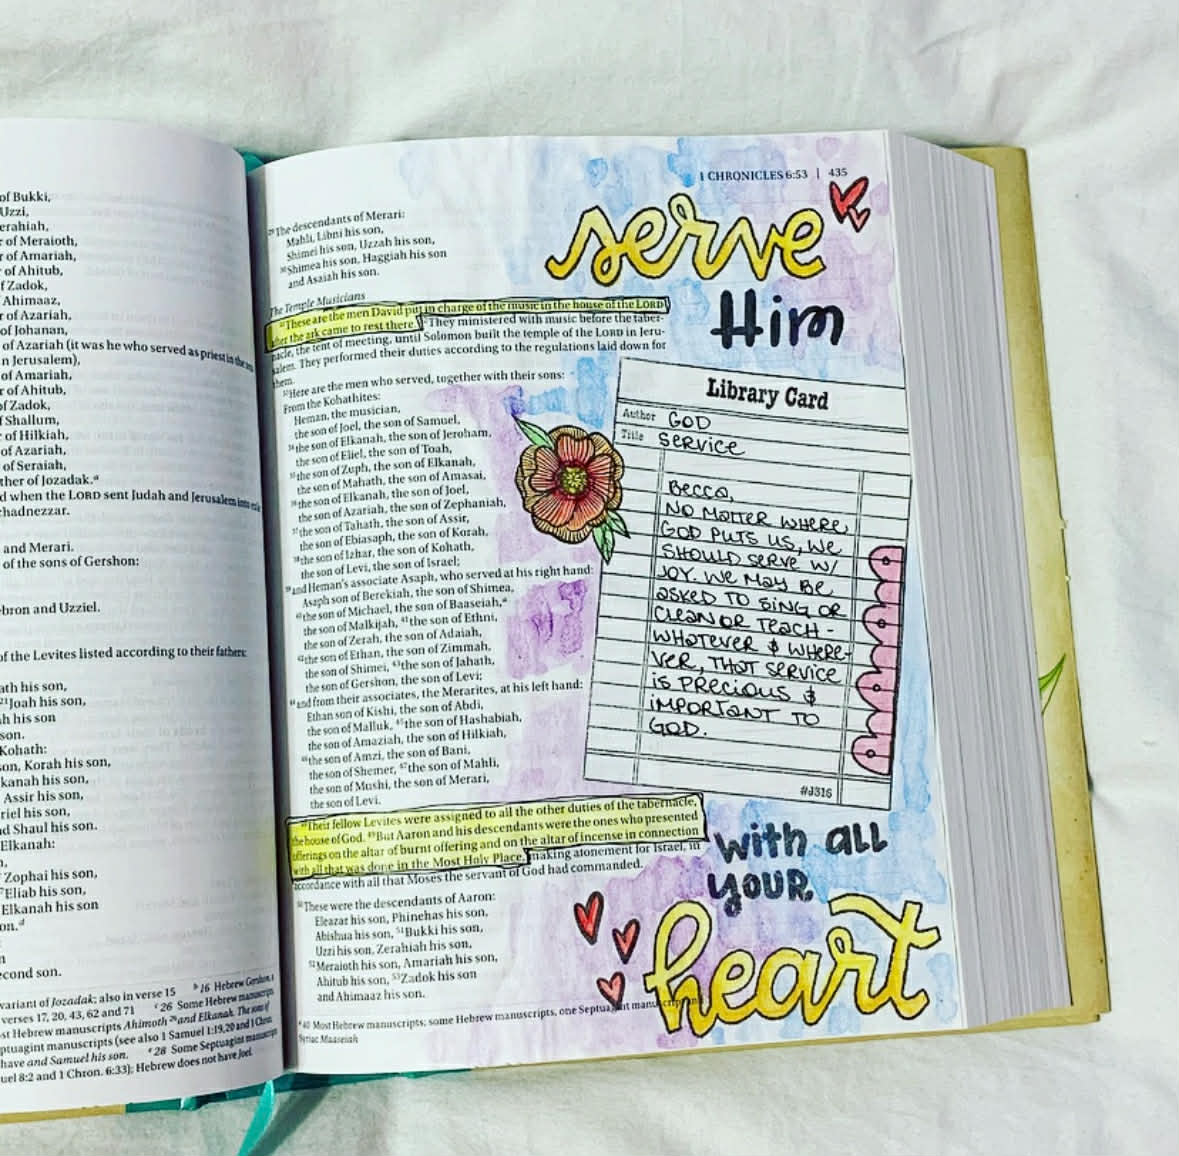 of Bukki,
Uzzi,
erahiah,
r of Meraioth,
of Amariah,
r of Ahitub,
f Zadok,
Ahimaaz,
r of Azariah,
of Johanan,
of Azariah (it was he who served as priest in the
n Jerusalem),
of Amariah,
r of Ahitub,
of Zadok,
f Shallum,
r of Hilkiah,
of Azariah,
of Seraiah,
ther of Jozadak.ᵃ
d when the LORD sent Judah and Jerusalem into
chadnezzar.
and Merari.
of the sons of Gershon:
ebron and Uzziel.
of the Levites listed according to their fathers:
ath his son,
²¹Joah his son,
h his son
son.
Kohath:
son, Korah his son,
kanah his son,
Assir his son,
riel his son,
nd Shaul his son.
Elkanah:
Zophai his son,
Eliab his son,
Elkanah his son
on.ᵈ
econd son.
variant of Jozadak; also in verse 15 ᵇ16 Hebrew Gershom,
verses 17, 20, 43, 62 and 71 ᶜ26 Some Hebrew manuscripts
st Hebrew manuscripts Ahimoth ²⁶and Elkanah. The sons of
ptuagint manuscripts (see also 1 Samuel 1:19,20 and 1 Chron.
have and Samuel his son. ᵉ28 Some Septuagint manuscripts
uel 8:2 and 1 Chron. 6:33); Hebrew does not have Joel.
1 CHRONICLES 6:53 | 435
²⁹The descendants of Merari:
Mahli, Libni his son,
Shimei his son, Uzzah his son,
³⁰Shimea his son, Haggiah his son
and Asaiah his son.
The Temple Musicians
³¹These are the men David put in charge of the music in the house of the LORD
after the ark came to rest there. ³²They ministered with music before the taber-
nacle, the tent of meeting, until Solomon built the temple of the LORD in Jeru-
salem. They performed their duties according to the regulations laid down for
them.
³³Here are the men who served, together with their sons:
From the Kohathites:
Heman, the musician,
the son of Joel, the son of Samuel,
³⁴the son of Elkanah, the son of Jeroham,
the son of Eliel, the son of Toah,
³⁵the son of Zuph, the son of Elkanah,
the son of Mahath, the son of Amasai,
³⁶the son of Elkanah, the son of Joel,
the son of Azariah, the son of Zephaniah,
³⁷the son of Tahath, the son of Assir,
the son of Ebiasaph, the son of Korah,
³⁸the son of Izhar, the son of Kohath,
the son of Levi, the son of Israel;
³⁹and Heman's associate Asaph, who served at his right hand:
Asaph son of Berekiah, the son of Shimea,
⁴⁰the son of Michael, the son of Baaseiah,ᵃ
the son of Malkijah, ⁴¹the son of Ethni,
the son of Zerah, the son of Adaiah,
⁴²the son of Ethan, the son of Zimmah,
the son of Shimei, ⁴³the son of Jahath,
the son of Gershon, the son of Levi;
⁴⁴and from their associates, the Merarites, at his left hand:
Ethan son of Kishi, the son of Abdi,
the son of Malluk, ⁴⁵the son of Hashabiah,
the son of Amaziah, the son of Hilkiah,
⁴⁶the son of Amzi, the son of Bani,
the son of Shemer, ⁴⁷the son of Mahli,
the son of Mushi, the son of Merari,
the son of Levi.
⁴⁸Their fellow Levites were assigned to all the other duties of the tabernacle,
the house of God. ⁴⁹But Aaron and his descendants were the ones who presented
offerings on the altar of burnt offering and on the altar of incense in connection
with all that was done in the Most Holy Place, making atonement for Israel, in
accordance with all that Moses the servant of God had commanded.
⁵⁰These were the descendants of Aaron:
Eleazar his son, Phinehas his son,
Abishua his son, ⁵¹Bukki his son,
Uzzi his son, Zerahiah his son,
⁵²Meraioth his son, Amariah his son,
Ahitub his son, ⁵³Zadok his son
and Ahimaaz his son.
ᵃ40 Most Hebrew manuscripts; some Hebrew manuscripts, one Septuagint manuscript and
Syriac Maaseiah
serve
Him
Library Card
Author GOD
Title SERVICE
BECCA,
NO MATTER WHERE
GOD PUTS US, WE
SHOULD SERVE W/
JOY. WE MAY BE
ASKED TO SING OR
CLEAN OR TEACH -
WHATEVER & WHERE-
VER, THAT SERVICE
IS PRECIOUS &
IMPORTANT TO
GOD.
#J316
with all
your
heart